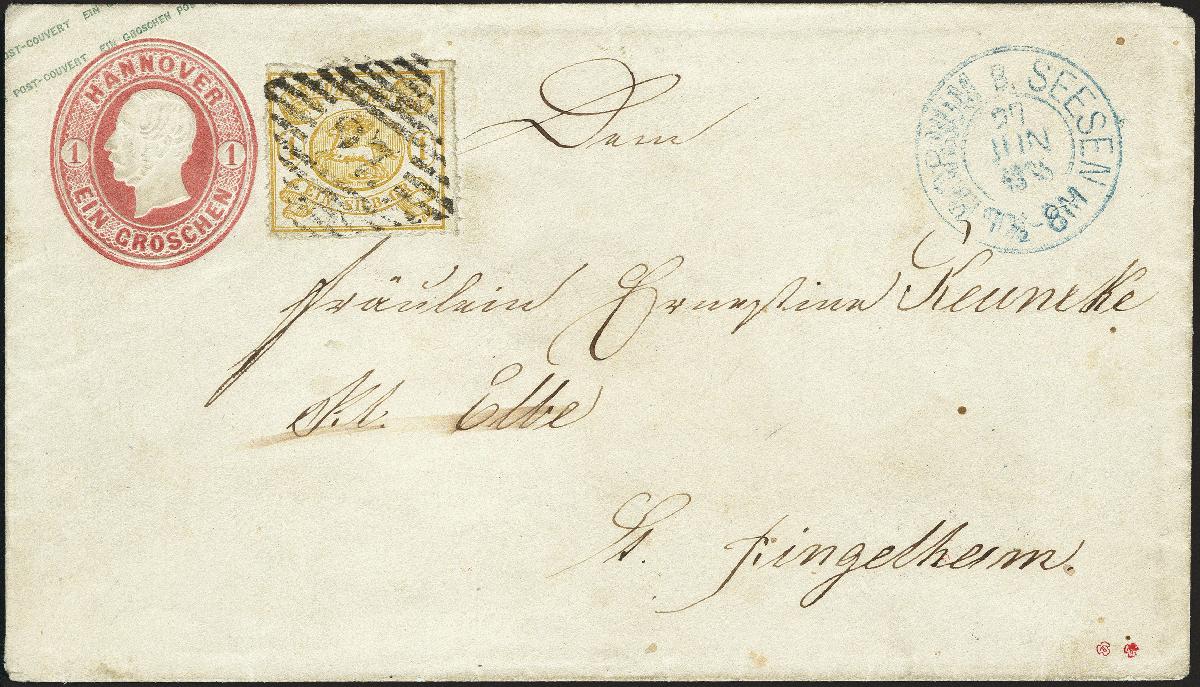 POST-COUVERT EIN G
POST-COUVERT EIN GROSCHEN POS
HANNOVER
1 1
EIN GROSCHEN
B. SEESEN
27
JUN
8M
Dem
Fräulein Ernestine Reunecke
Kl. Elbe
b. Ringelheim.